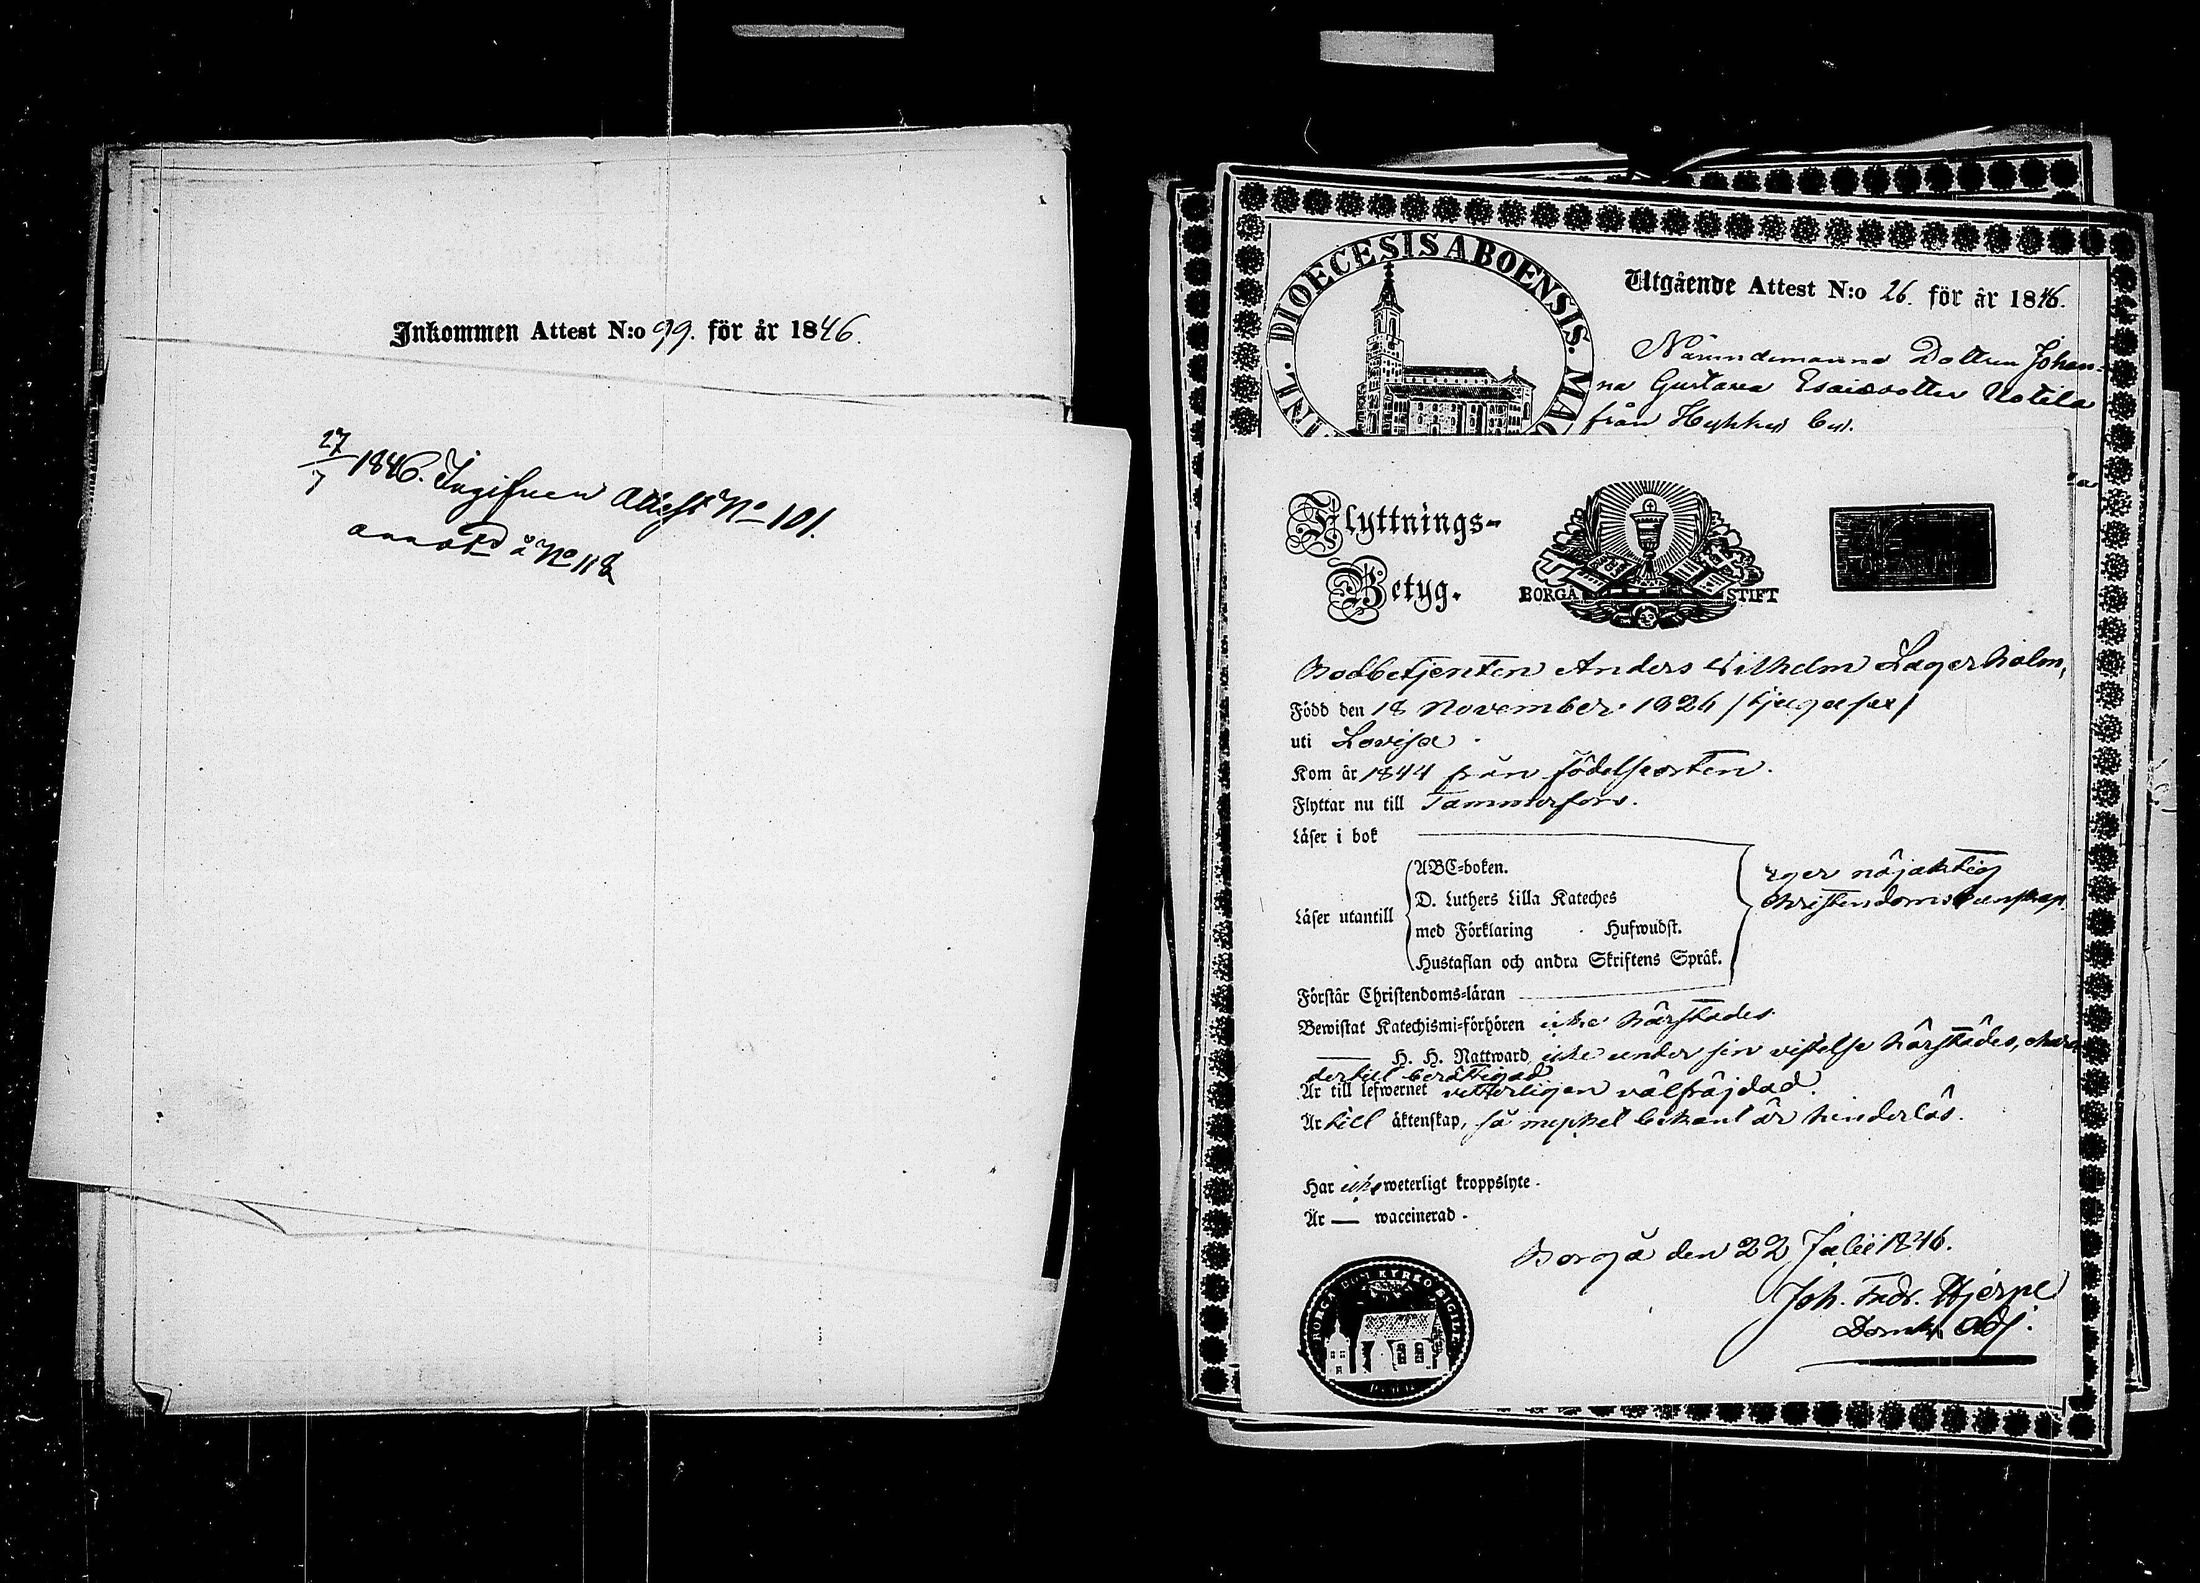 Inkommen Attest N:o 99. för år 1846.
27/7 1846. Ingifven Attest No 101.
annot. å No 118
DIOECESIS ABOENSIS. MAG
Utgående Attest N:o 26. för år 1846.
Nämndemanns Dottren Johan-
na Gustava Esaiedotter Uotila
från Hykkys by.
Flyttnings-
Betyg.
BORGÅ STIFT
Bodbetjenten Anders Wilhelm Lagerholm,
Född den 18 November 1826 /tjugusex/
uti Lovisa.
Kom år 1844 från födelseorten.
Flyttar nu till Tammerfors.
Läser i bok
Läser utantill
ABC-boken.
D. Luthers Lilla Kateches
med Förklaring Hufwudst.
Hustaflan och andra Skriftens Språk.
eger nöjaktig
Christendomskunskap.
Förstår Christendoms-läran
Bewistat Katechismi-förhören icke härstädes
H. H. Nattward icke under sin vistelse härstädes, men
dertill berättigad
Är till lefwernet vetterligen välfräjdad.
Är till äktenskap, så mycket bekant är hinderlös.
Har icke weterligt kroppslyte.
Är — waccinerad.
Borgå den 22 Julii 1846.
Joh. Fredr. Hjerpe
Domk. Adj.
BORGÅ DOM KYRKO SIGILL